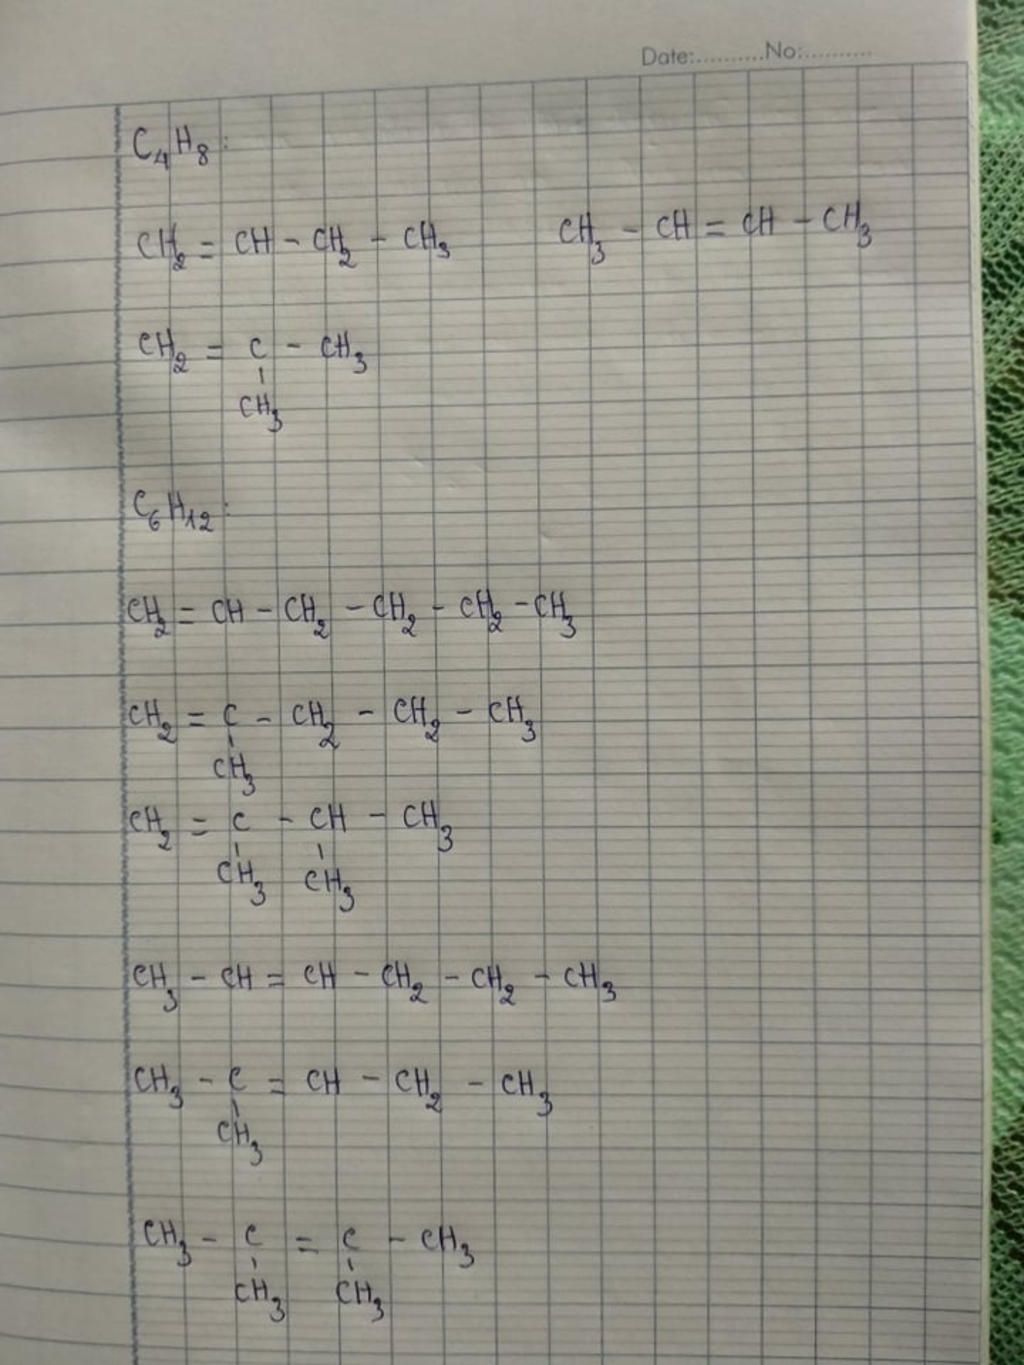 Date:..........No:..........
C₄H₈:
CH₂ = CH - CH₂ - CH₃    CH₃ - CH = CH - CH₃
CH₂ = C - CH₃
CH₃
C₆H₁₂:
CH₂ = CH - CH₂ - CH₂ - CH₂ - CH₃
CH₂ = C - CH₂ - CH₂ - CH₃
CH₃
CH₂ = C - CH - CH₃
CH₃ CH₃
CH₃ - CH = CH - CH₂ - CH₂ - CH₃
CH₃ - C = CH - CH₂ - CH₃
CH₃
CH₃ - C = C - CH₃
CH₃ CH₃